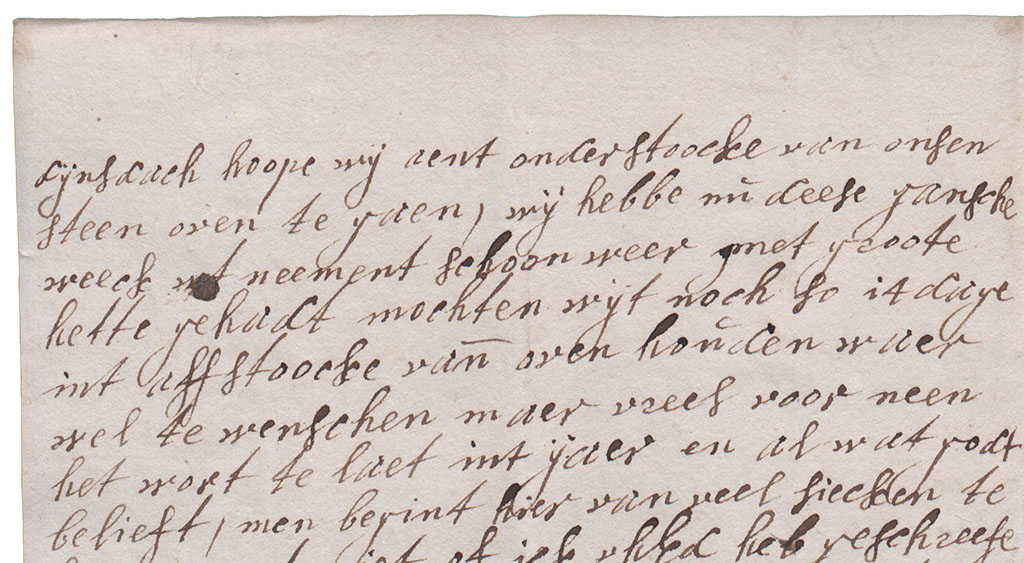 dijnsdach hoope wij aent onderstoocke van onsen
steen oven te gaen, wij hebbe nu deese gansche
weeck wt neement schoon weer met groote
hette gehadt mochten wijt noch so 14 dage
int affstoocke vann oven houden waer
wel te wenschen maer vrees voor neen
het wort te laet int jaer en al wat godt
belieft, men begint hier van veel sieckten te
of ick heb geschreefe